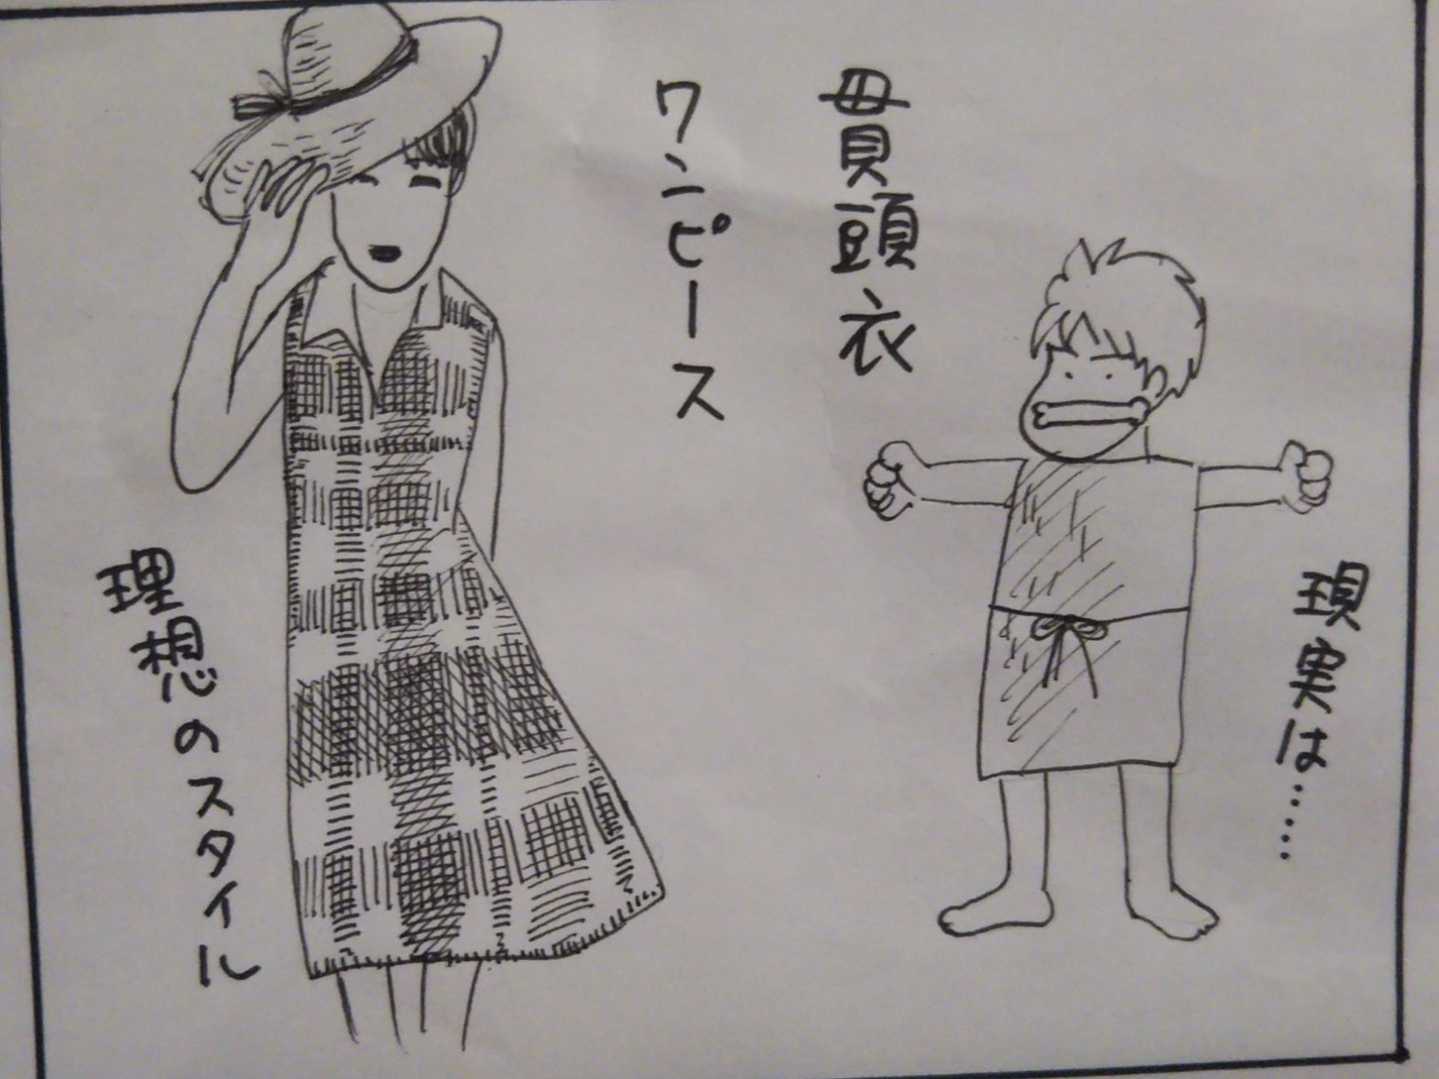 貫頭衣
ワンピース
現実は……
理想のスタイル